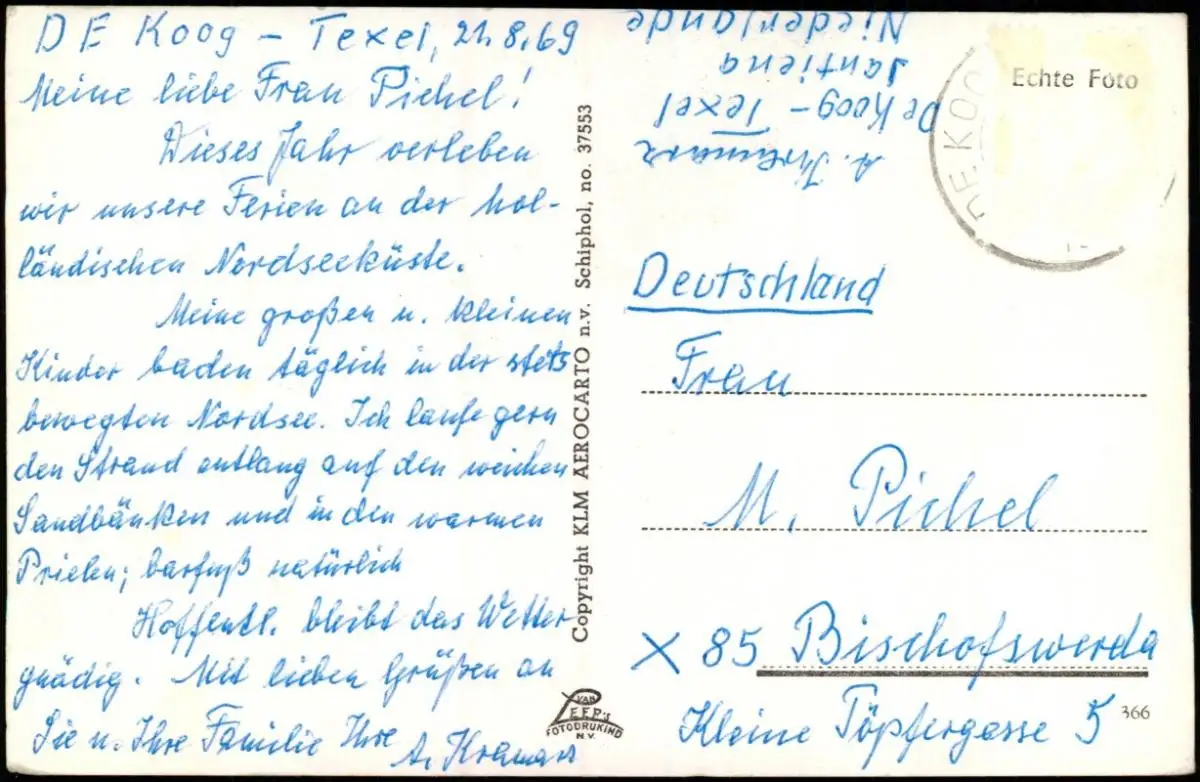 DE Koog - Texel, 21.8.69
Meine liebe Frau Pichel!
Dieses Jahr verleben
wir unsere Ferien an der hol-
ländischen Nordseeküste.
Meine großen u. kleinen
Kinder baden täglich in der stets
bewegten Nordsee. Ich laufe gern
den Strand entlang auf den weichen
Sandbänken und in den warmen
Prielen; barfuß natürlich
Hoffentl. bleibt das Wetter
gnädig. Mit lieben Grüßen an
Sie u. Ihre Familie Ihre
A.
Copyright KLM AEROCARTO n.v. Schiphol, no. 37553
VAN
LEER's
FOTODRUKIND
N.V.
A.
De Koog - Texel
Jantiena
Niederlande
Echte Foto
DE KOOG
Deutschland
Frau
M. Pichel
X 85 Bischofswerda
Kleine Töpfergasse 5
366